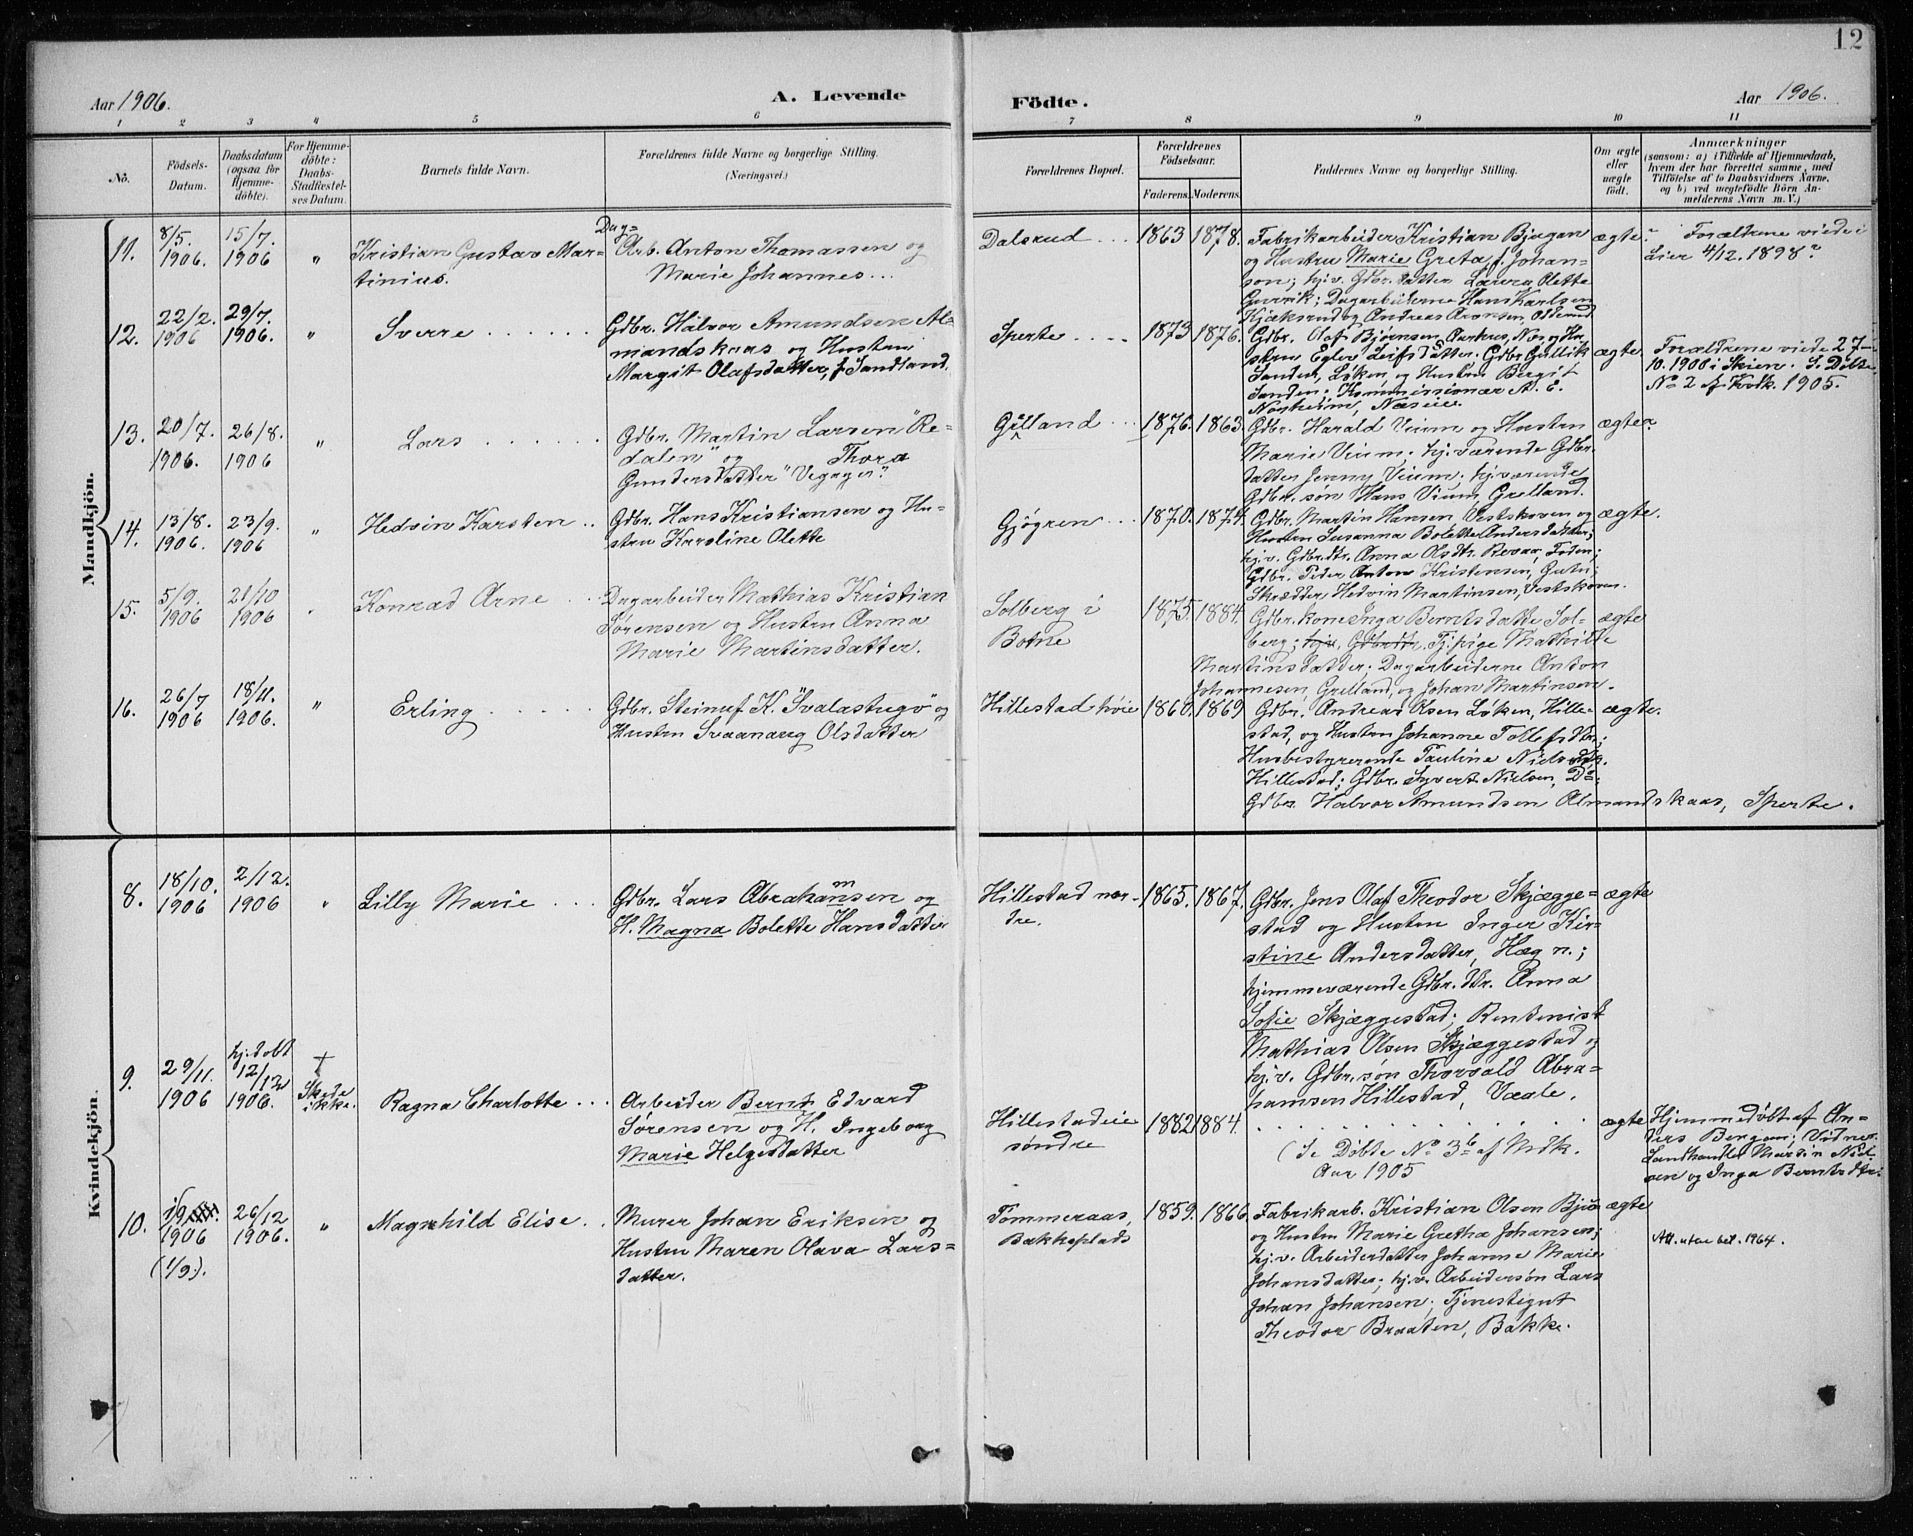 12
Aar 1906.
A. Levende
Födte.
Aar 1906.
1 2 3 4 5 6 7 8 9 10 11
No.
Födsels-Datum.
Daabsdatum (ogsaa for Hjemmedöbte).
For Hjemmedöbte: Daabs-Stadfæstelses Datum.
Barnets fulde Navn.
Forældrenes fulde Navne og borgerlige Stilling. (Næringsvei.)
Forældrenes Bopæl.
Forældrenes Födselsaar.
Faderens. Moderens.
Faddernes Navne og borgerlige Stilling.
Om ægte eller uægte födt.
Anmærkninger (saasom: a) i Tilfælde af Hjemmedaab, hvem der har forrettet samme, med Tilföielse af to Daabsvidners Navne, og b) ved uægtefödte Börn Anmelderens Navn m. V.)
Mandkjön.
11.
8/5. 1906.
15/7. 1906
"
Kristian Gustav Mar-
tinius.
Dag=
Arb. Anton Thomassen og
Marie Johannes...
Dalsrud ...
1863 1878.
Fabrikarbeider Kristian Bjugan
og Hustru Marie Greta f. Johan-
son; hjv. Gdbr.datter Laura Olette
Gurrik; Dagarbeiderne Hans Karlsen
Hjæksrud og Andreas Aronsen, Odland
ægte?
Forældrene viede i
Lier 4/12. 1898?
12.
22/2. 1906
29/7. 1906.
"
Sverre ......
Gdbr. Halvor Amundsen Al-
mandskaas og Hustru
Margit Olafsdatter, f. Sandland.
Sperte ....
1873 1876.
Gdbr. Olaf Bjørnsen Aarhus, Nes og Hu-
stru Egler Leifsdatter. Gdbr. Gullik
Sanden, Løken og Hustru Bergit
Sanden; Kommissionær A. E.
Norheim, Næseie.
ægte
Forældrene viede 27-
10. 1900 i Skien. S. Døbte
No 2 af Kvdk. 1905.
13.
20/7. 1906.
26/8. 1906
"
Lars ......
Gdbr. Martin Larsen "Re-
dalen" og Thora
Gundersdatter "Vegger"?
Gilland ...
1876. 1863.
Gdbr. Harald Vium og Hustru
Marie Vium; hj.værende Gdbr.
datter Jenny Vium; hj.værende
Gdbr. søn Hans Vium, Grelland.
ægte?
14.
13/8. 1906.
23/9. 1906
"
Hedvin Karsten ..
Gdbr. Hans Kristiansen og Hu-
stru Karoline Olette
Gjøgren ...
1870. 1874.
Gdbr. Martin Hansen Vestskoven og
Hustru Susanna Bolette Andersdatter;
hj.v. Gdbr.dtr. Anna Olsdtr. Revaa, Foden;
Gdbr. Peder Anton Kristensen, Gutu;
Skrædder Hedvin Martinsen, Vestskoven.
ægte.
15.
5/9. 1906
21/10 1906
"
Konrad Arne ..
Dagarbeider Mathias Kristian
Sørensen og Hustru Anna
Marie Martinsdatter.
Solberg i
Botne
1875. 1884.
Gdbr. kone Inga Berntsdatter Sol-
berg; hjv. Gdbrdtr. Tj.pige Mathilde
Martinsdatter; Dagarbeiderne Anton
Johannesen, Grelland, og Johan Martinsen.
ægte
16.
26/7 1906
18/11. 1906.
"
Erling .....
Gdbr. Steinuf K. "Svalastugo" og
Hustru Svaanaug Olsdatter
Hillestad høie
1860. 1869
Gdbr. Andreas Olsen Løken, Hille-
stad, og Hustru Johanne Tollefsdtr;
Husbestyrerende Pauline Nielsdtr.
Hillestad; Gdbr. Syvert Nielsen, Do;
Gdbr. Halvor Amundsen Almandskaas, Sperte.
ægte.
Kvindekjön.
8.
18/10. 1906
2/12. 1906
"
Lilly Marie ...
Gdbr. Lars Abrahamsen og
H. Magna Bolette Hansdatter
Hillestad nor-
dre.
1865. 1867.
Gdbr. Jens Olaf Theodor Skjægge-
stad og Hustru Inger Kir-
stine Andersdatter, Hæg n.;
hjemmeværende Gdbr. dtr. Anna
Sofie Skjæggestad; Rentenist
Mathias Olsen Skjæggestad og
hj.v. Gdbr.søn Thorvald Abra-
hamsen Hillestad, Væale.
ægte
9.
29/11. 1906
hj.døbt 12/12 1906.
†
Skede
ikke.
Ragna Charlotte ...
Arbeider Bernt Edvard
Sørensen og H. Ingeborg
Marie Helgesdatter
Hillestadeie
søndre
1882 1884.
(Se Døbte No 3b af Mdk.
Aar 1905
ægte
Hjemmedøbt af An-
ders Bergan; Vidner
Landhandler Martin Niel-
sen og Inga Berntsdtr.
10.
1906
(1/9.).
26/12 1906.
"
Magnhild Elise ..
Murer Johan Eriksen og
Hustru Maren Olava Lars=
datter.
Tommeraas,
Bakkeplads
1859. 1866
Fabrikarb. Kristian Olsen Bjuo
og Hustru Marie Grethe Johansen;
hj.v. Arbeiderdatter Johanne Marie
Johansdatter; hj.v. Arbeidersøn Lars
Johan Johansen; Tjenestegut
Theodor Braaten, Bakke.
ægte
Att. uten bet. 1964.